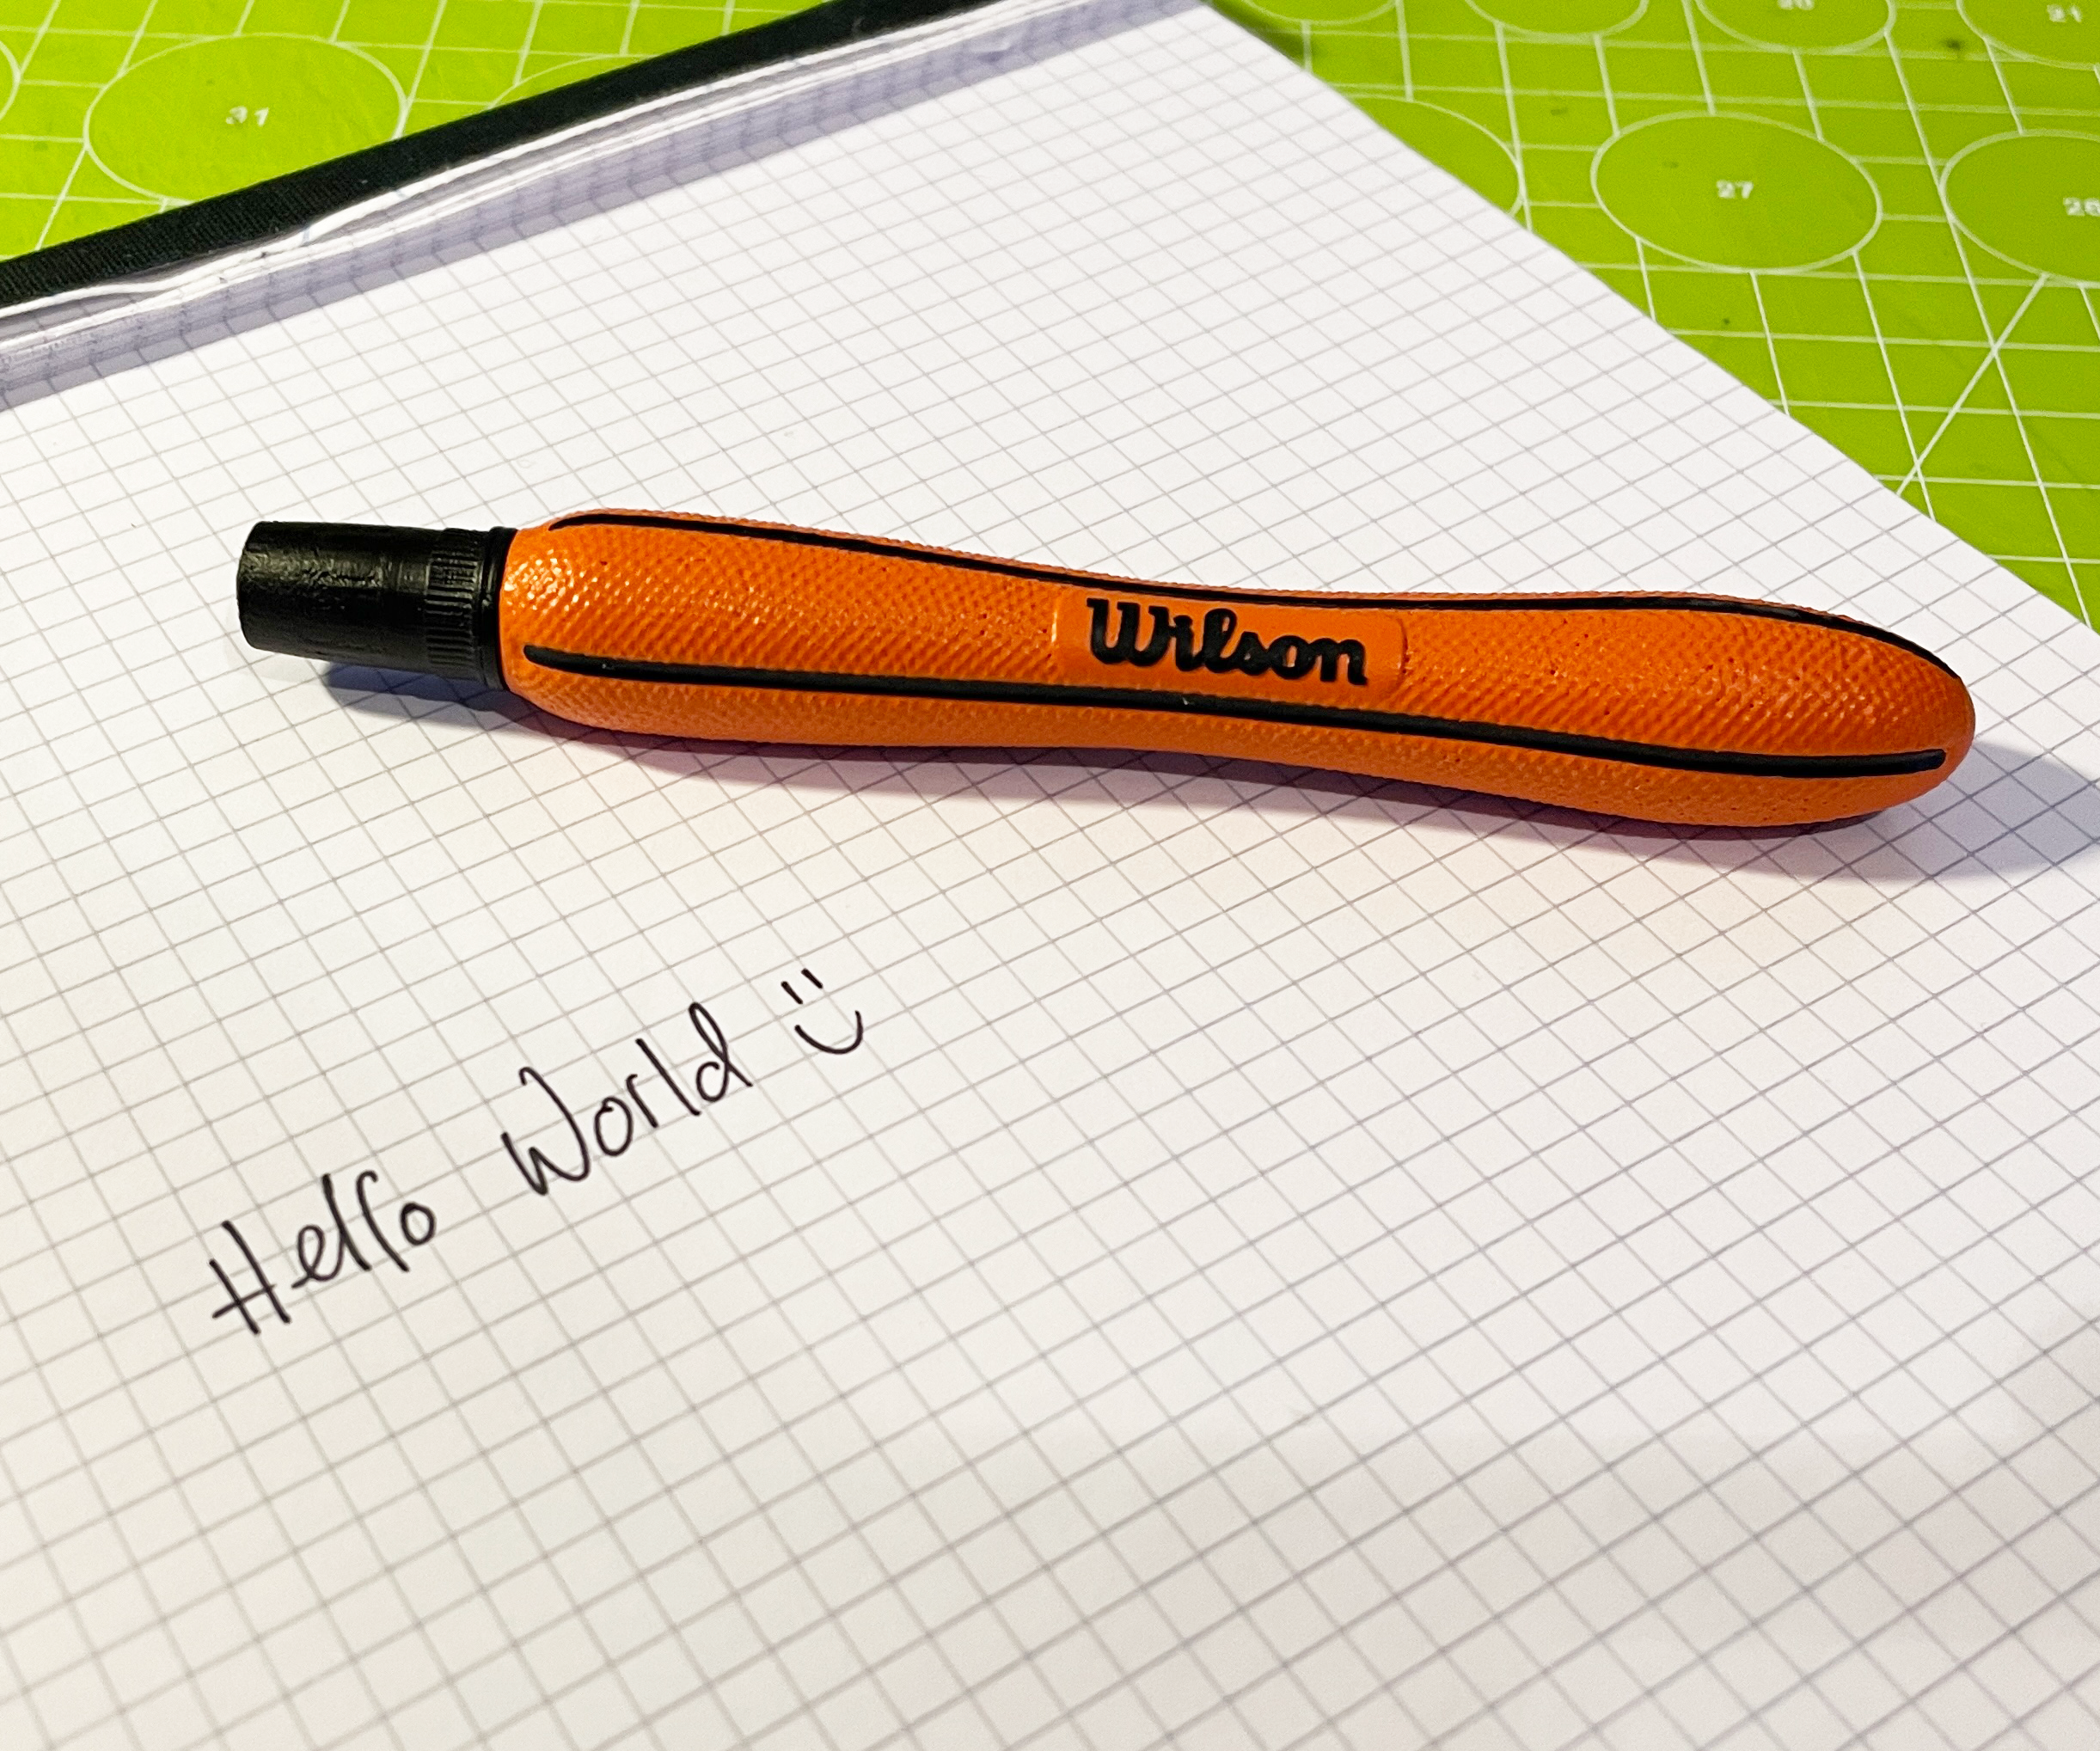 31
20
21
27
Wilson
Hello World :)